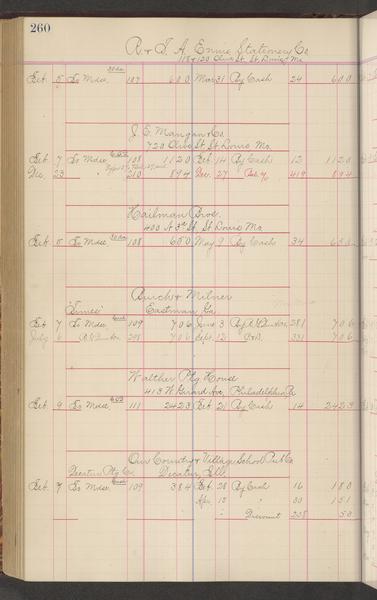 260
R. & J. A. Ennis Stationery Co
118 & 120 Olive St. St. Louis Mo
Oct 5 To Mdse 30 da 107 6 00 Mar 31 By Cash 24 6 00
J. E. Mangan & Co.
720 Olive St. St. Louis Mo.
Oct 7 To Mdse 108 11 20 Oct 14 By Cash 12 11 20
Dec. 23 " 210 8 94 Dec. 27 419 8 94
Hailman Bros.
400 N 3rd St. St. Louis Mo.
Oct 5 To Mdse 30 da 108 6 00 May 9 By Cash 34 6 00
Burch & Milner
"Times" Eastman Ga
Oct 7 To Mdse 109 7 06 June 3 281 7 06
July 6 208 7 06 Sept. 12 331 7 06
Walther Ptg House
413 N Girard Ave, Philadelphia Pa
Oct. 9 To Mdse 111 24 23 Oct 21 By Cash 14 24 23
Our Country & Village School Pub Co
Decatur Ptg Co. Decatur Ill.
Oct. 7 To Mdse 109 3 84 Oct. 28 By Cash 16 1 80
Apr. 15 " 30 1 51
" Discount 258 53